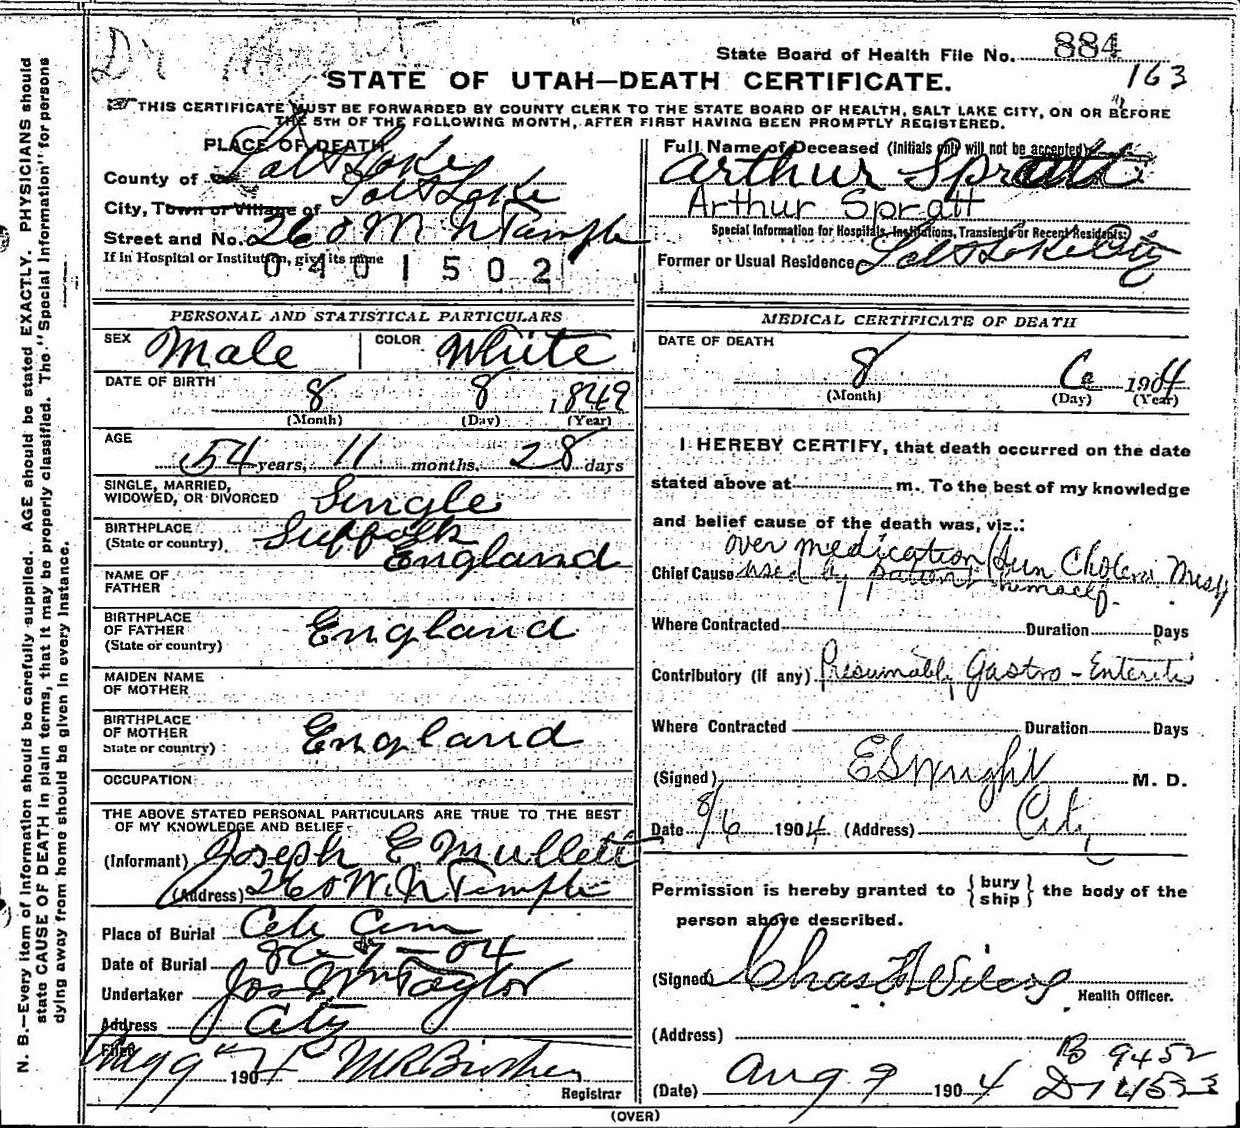 Dr
State Board of Health File No. 884
163
STATE OF UTAH—DEATH CERTIFICATE.
THIS CERTIFICATE MUST BE FORWARDED BY COUNTY CLERK TO THE STATE BOARD OF HEALTH, SALT LAKE CITY, ON OR BEFORE
THE 5TH OF THE FOLLOWING MONTH, AFTER FIRST HAVING BEEN PROMPTLY REGISTERED.
PLACE OF DEATH
County of Salt Lake
City, Town or Village of Salt Lake
Street and No. 260 W N Temple
If in Hospital or Institution, give its name
0401502
Full Name of Deceased (Initials only will not be accepted)
Arthur Spratt
Arthur Spratt
Special Information for Hospitals, Institutions, Transients or Recent Residents:
Former or Usual Residence Salt Lake City
PERSONAL AND STATISTICAL PARTICULARS
SEX Male COLOR White
DATE OF BIRTH
8 8 1849
(Month) (Day) (Year)
AGE
54 years, 11 months, 28 days
SINGLE, MARRIED,
WIDOWED, OR DIVORCED Single
BIRTHPLACE Suffolk
(State or country) England
NAME OF
FATHER
BIRTHPLACE
OF FATHER England
(State or country)
MAIDEN NAME
OF MOTHER
BIRTHPLACE
OF MOTHER England
State or country)
OCCUPATION
THE ABOVE STATED PERSONAL PARTICULARS ARE TRUE TO THE BEST
OF MY KNOWLEDGE AND BELIEF
(Informant) Joseph E Mullett
(Address) 260 W. N Temple
Place of Burial City Cem
Date of Burial 04
Undertaker Jos Wm Taylor
Address City
Filed Aug 9" 1904
Registrar
MEDICAL CERTIFICATE OF DEATH
DATE OF DEATH
8 6 1904
(Month) (Day) (Year)
I HEREBY CERTIFY, that death occurred on the date
stated above at m. To the best of my knowledge
and belief cause of the death was, viz.:
over medication (Sun Cholera
Chief Cause used by patient himself.
Where Contracted Duration Days
Contributory (if any) Presumably Gastro-Enteritis
Where Contracted Duration Days
(Signed) E S Wright M. D.
Date 8/6 1904 (Address) City
Permission is hereby granted to {bury
ship} the body of the
person above described.
(Signed) Chas
Health Officer.
(Address)
(Date) Aug 9 1904
B 9452
D 14533
(OVER)
N. B.—Every item of information should be carefully supplied. AGE should be stated EXACTLY. PHYSICIANS should
state CAUSE OF DEATH in plain terms, that it may be properly classified. The "Special Information" for persons
dying away from home should be given in every instance.